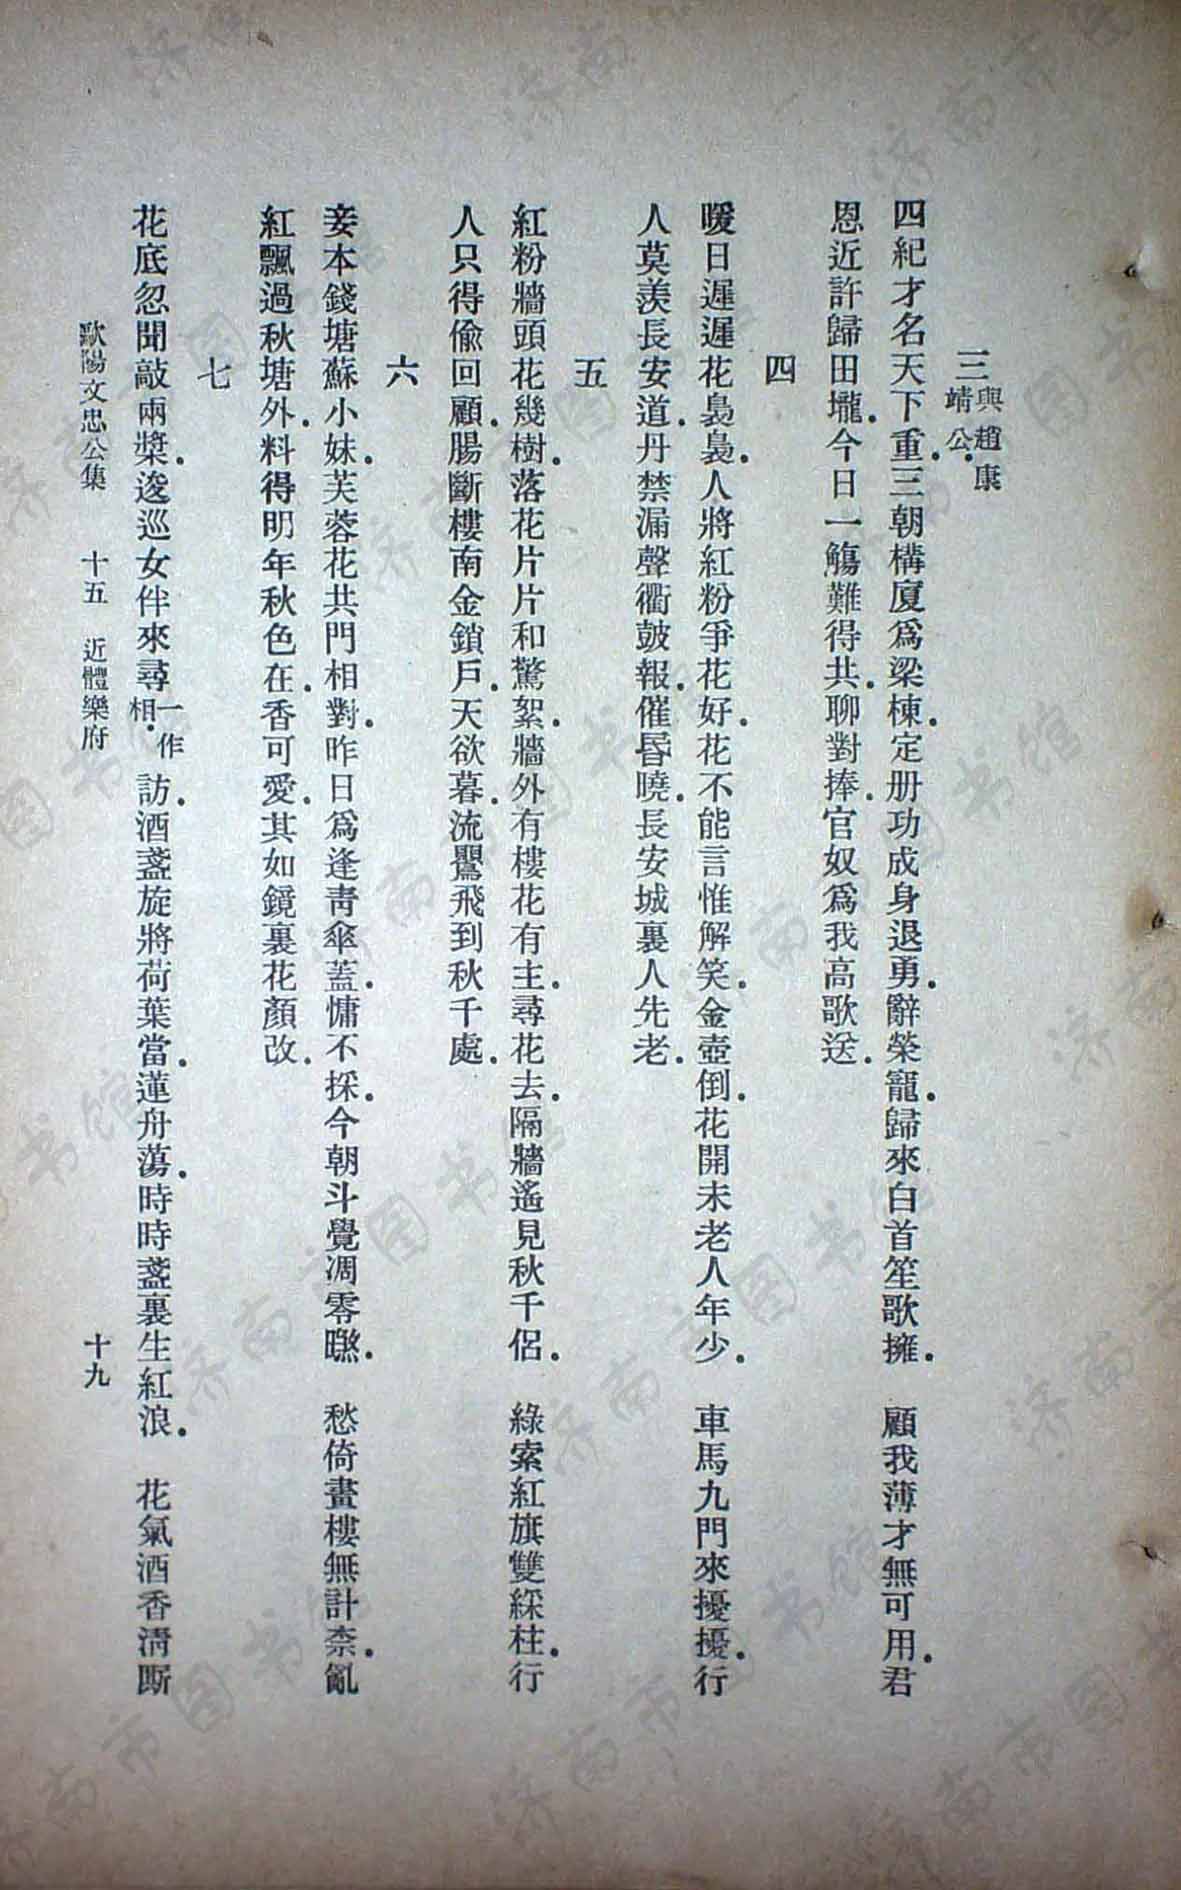 三 與趙康靖公
四紀才名天下重．三朝構廈爲梁棟．定册功成身退勇．辭榮寵．歸來白首笙歌擁．　顧我薄才無可用．君
恩近許歸田壠．今日一觴難得共．聊對捧．官奴爲我高歌送．
四
暖日遲遲花裊裊．人將紅粉爭花好．花不能言惟解笑．金壺倒．花開未老人年少．　車馬九門來擾擾．行
人莫羨長安道．丹禁漏聲衢鼓報．催昏曉．長安城裏人先老．
五
紅粉牆頭花幾樹．落花片片和驚絮．牆外有樓花有主．尋花去．隔牆遙見秋千侶．　綠索紅旗雙綵柱．行
人只得偷回顧．腸斷樓南金鎖戶．天欲暮．流鶯飛到秋千處．
六
妾本錢塘蘇小妹．芙蓉花共門相對．昨日爲逢靑傘蓋．慵不採．今朝斗覺凋零㬠．　愁倚畫樓無計柰．亂
紅飄過秋塘外．料得明年秋色在．香可愛．其如鏡裏花顏改．
七
花底忽聞敲兩槳．逡巡女伴來尋一作相．訪．酒盞旋將荷葉當．蓮舟蕩．時時盞裏生紅浪．　花氣酒香淸厮
歐陽文忠公集　十五　近體樂府　十九
济南市图书馆